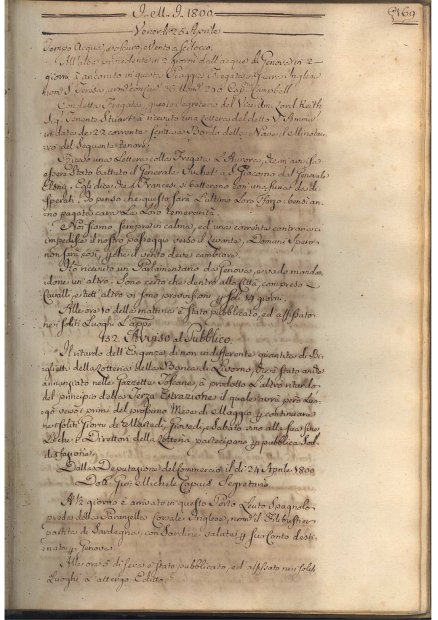 J. M. J. 1800
169
Venerdì 25 Aprile
Tempo Acqua, oscuro, e Vento a Scilocco.
All'alba proveniente in 2 giorni dall'acque di Genova in 2
giorni à ancorato in questa Spiaggia Fregata di Guerra Inglese
nom.
Con detta Fregata, questo Segretario del Lord Keith
Sig.r Tenente à ricevuto una lettera del detto
in data de 22 corrente scritta a Bordo della Nave il Minotauro
del seguente tenore.
Ricevo una Lettera colla Fregata L'Aurora, che m'avvisa
essere stato battuto il Generale Suchet a S. Giacomo dal Generale
Egli dice, che i Francesi si batterono con una furia da di-
sperati. Io penso che questo sarà l'ultimo Loro sforzo: bensì an-
no pagata cara La Loro temerarità.
Noi siamo sempre in calma, ed una corrente contraria ci
impedisce il nostro passaggio verso il Levante, Domani spero
non sarà così, e che il vento deve cambiare.
Hò ricevuto un Parlamentario da Genova, e vado mandan-
done un altro: Sono certo che dentro alla Città, compreso
Cavalli, e tutt'altro vi sono provisioni p soli 14 giorni.
Alle ore otto della mattina è stato pubblicato, ed affissato
nei soliti Luoghi L'app.o
452 Avviso al Pubblico.
Il ritardo dell'Esigenza di non indifferente quantità di Bi-
glietti della Lotteria della Banca di Livorno, che è stata anche
annunciata nelle Gazzette Toscane, à prodotto L'altro ritardo
del principio della Terza Estrazione il quale avrà però Luo-
go verso i primi del prossimo Mese di Maggio, p continuare
nei soliti Giorni di Martedì, Giovedì, e Sabato sino alla sua fine
Lochè i Direttori della Lotteria partecipano p pubblica sod-
disfazione.
Dalla Deputazione del Commercio li dì 24 Aprile 1800
Dott. Gio: Michele Segretario
A ½ giorno è arrivato in questo Porto Leuto Spagnolo
preda della Paranzella Corsale Inglese, nom.
partita di Sardegna con Sardine salate p suo Conto desti-
nato p Genova.
Alle ore 5 di sera è stato pubblicato, ed affissato nei soliti
Luoghi L'attergo Editto.